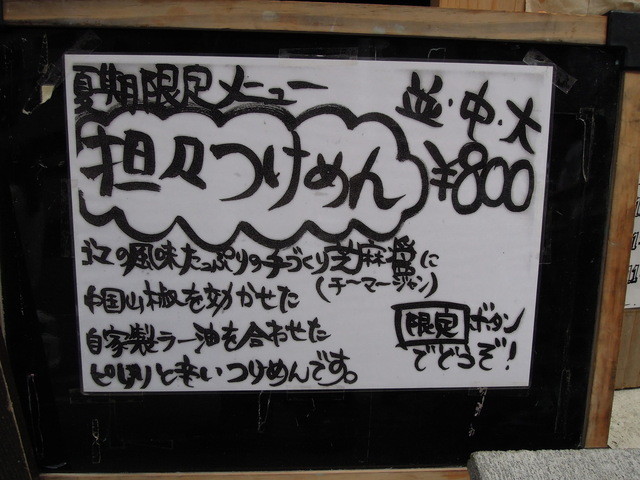 夏期限定メニュー
並・中・大
担々つけめん
¥800
ゴマの風味たっぷりの手づくり芝麻醤に
(チーマージャン)
中国山椒を効かせた
自家製ラー油を合わせた
ピリリと辛いつけめんです。
限定ボタン
でどうぞ!